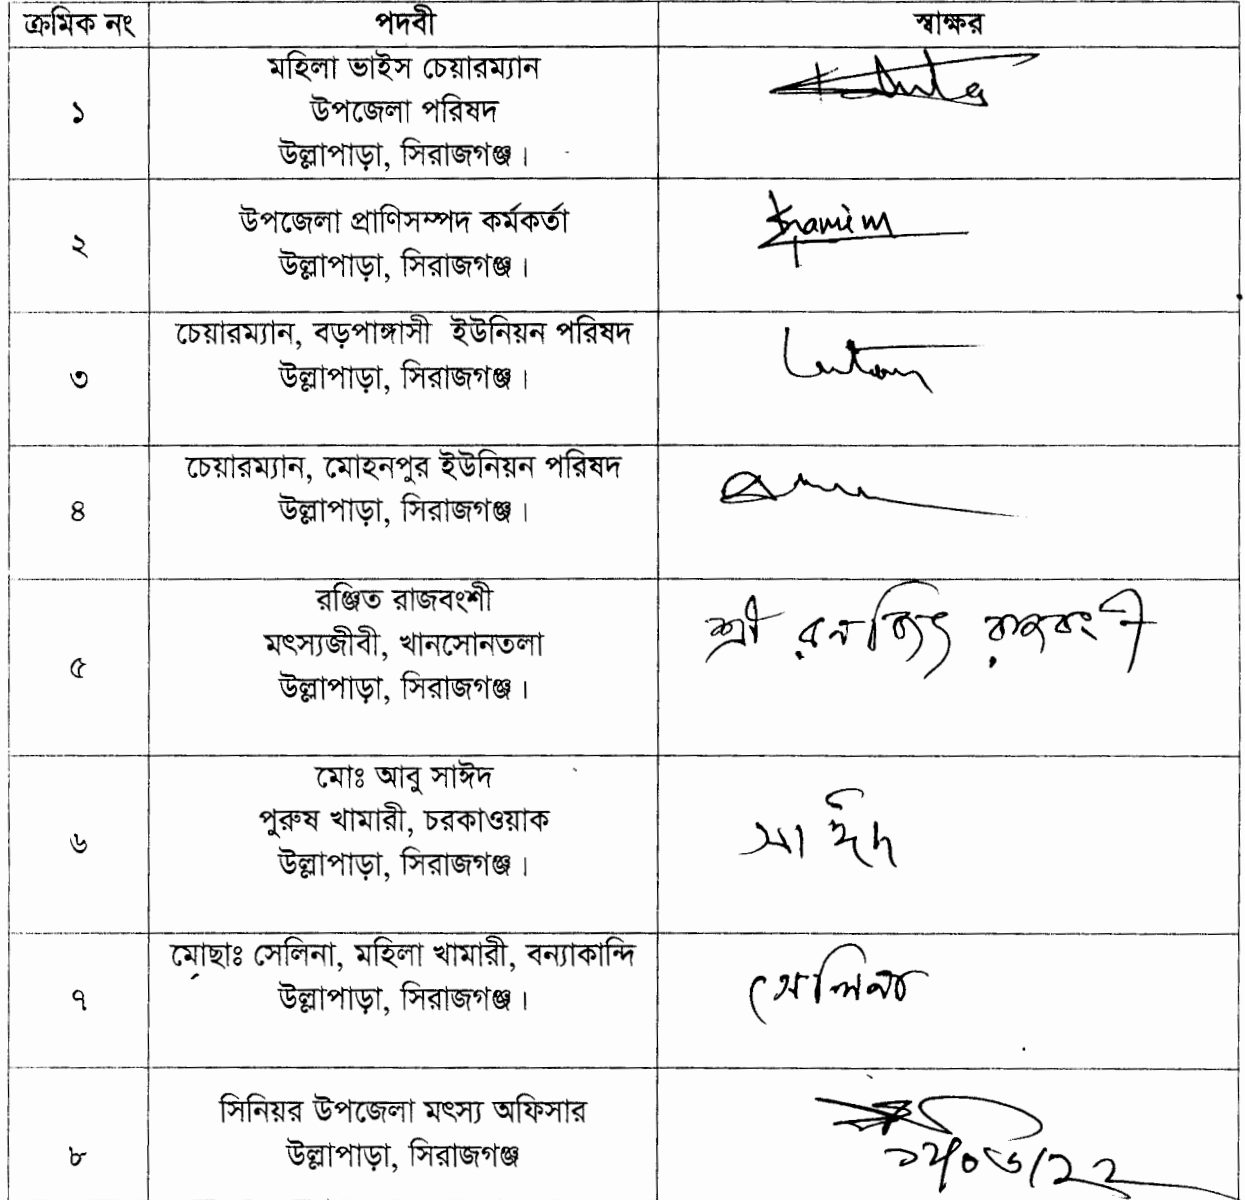 ক্রমিক নং পদবী স্বাক্ষর
মহিলা ভাইস চেয়ারম্যান
১ উপজেলা পরিষদ
উল্লাপাড়া, সিরাজগঞ্জ।
উপজেলা প্রাণিসম্পদ কর্মকর্তা
২ উল্লাপাড়া, সিরাজগঞ্জ।
চেয়ারম্যান, বড়পাঙ্গাসী ইউনিয়ন পরিষদ
৩ উল্লাপাড়া, সিরাজগঞ্জ।
চেয়ারম্যান, মোহনপুর ইউনিয়ন পরিষদ
৪ উল্লাপাড়া, সিরাজগঞ্জ।
রঞ্জিত রাজবংশী
মৎস্যজীবী, খানসোনতলা শ্রী রনজিৎ রাজবংশী
৫ উল্লাপাড়া, সিরাজগঞ্জ।
মোঃ আবু সাঈদ
পুরুষ খামারী, চরকাওয়াক সাঈদ
৬ উল্লাপাড়া, সিরাজগঞ্জ।
মোছাঃ সেলিনা, মহিলা খামারী, বন্যাকান্দি
৭ উল্লাপাড়া, সিরাজগঞ্জ। সেলিনা
সিনিয়র উপজেলা মৎস্য অফিসার
৮ উল্লাপাড়া, সিরাজগঞ্জ